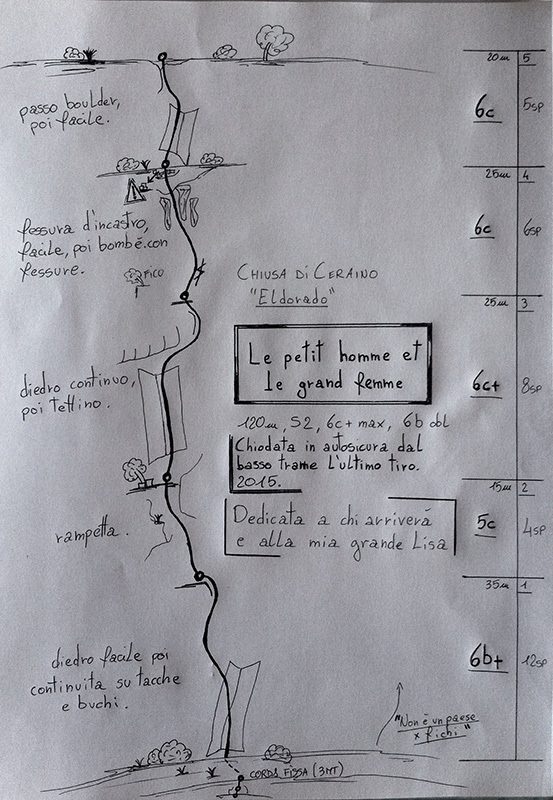 20m 5
passo boulder,
poi facile.
6c 5SP
25m 4
fessura d'incastro,
facile, poi bombé con
fessure.
6c 6SP
FICO
CHIUSA DI CERAINO
"Eldorado"
25m 3
Le petit homme et
le grand femme
diedro continuo,
poi tettino.
6c+ 8SP
120m, S2, 6c+ max, 6b obl
Chiodata in autosicura dal
basso trame l'ultimo tiro.
2015.
15m 2
Dedicata a chi arriverá
e alla mia grande Lisa
5c 4SP
rampetta.
35m 1
diedro facile poi
continuita su tacche
e buchi.
6b+ 12SP
"Non è un paese
x fichi"
CORDA FISSA (3MT)